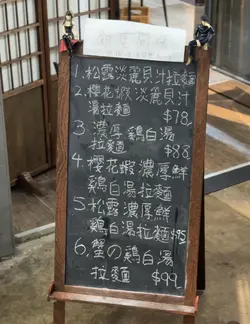 1. 松露淡麗貝汁拉麵
2. 櫻花蝦淡麗貝汁
湯拉麵 $78
3. 濃厚鷄白湯
拉麵 $88
4. 櫻花蝦濃厚鮮
鷄白湯拉麵
5. 松露濃厚鮮
鷄白湯拉麵 $95
6. 蟹の鷄白湯
拉麵 $99